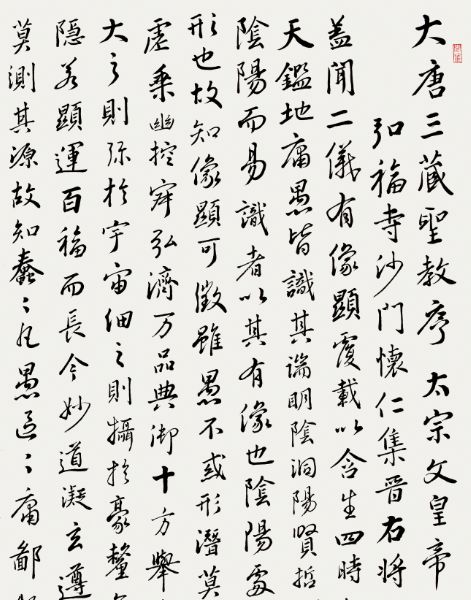 大唐三藏聖教序 太宗文皇帝
弘福寺沙門懷仁集晉右將
蓋聞二儀有像顯覆載以含生四時
天鑑地庸愚皆識其端明陰洞陽賢哲
陰陽而易識者以其有像也陰陽處
形也故知像顯可徵雖愚不惑形潛莫
虛乘幽控寂弘濟万品典御十方舉
大之則弥於宇宙細之則攝於豪釐
隱若顯運百福而長今妙道凝玄遵
莫測其源故知蠢〻凡愚區〻庸鄙